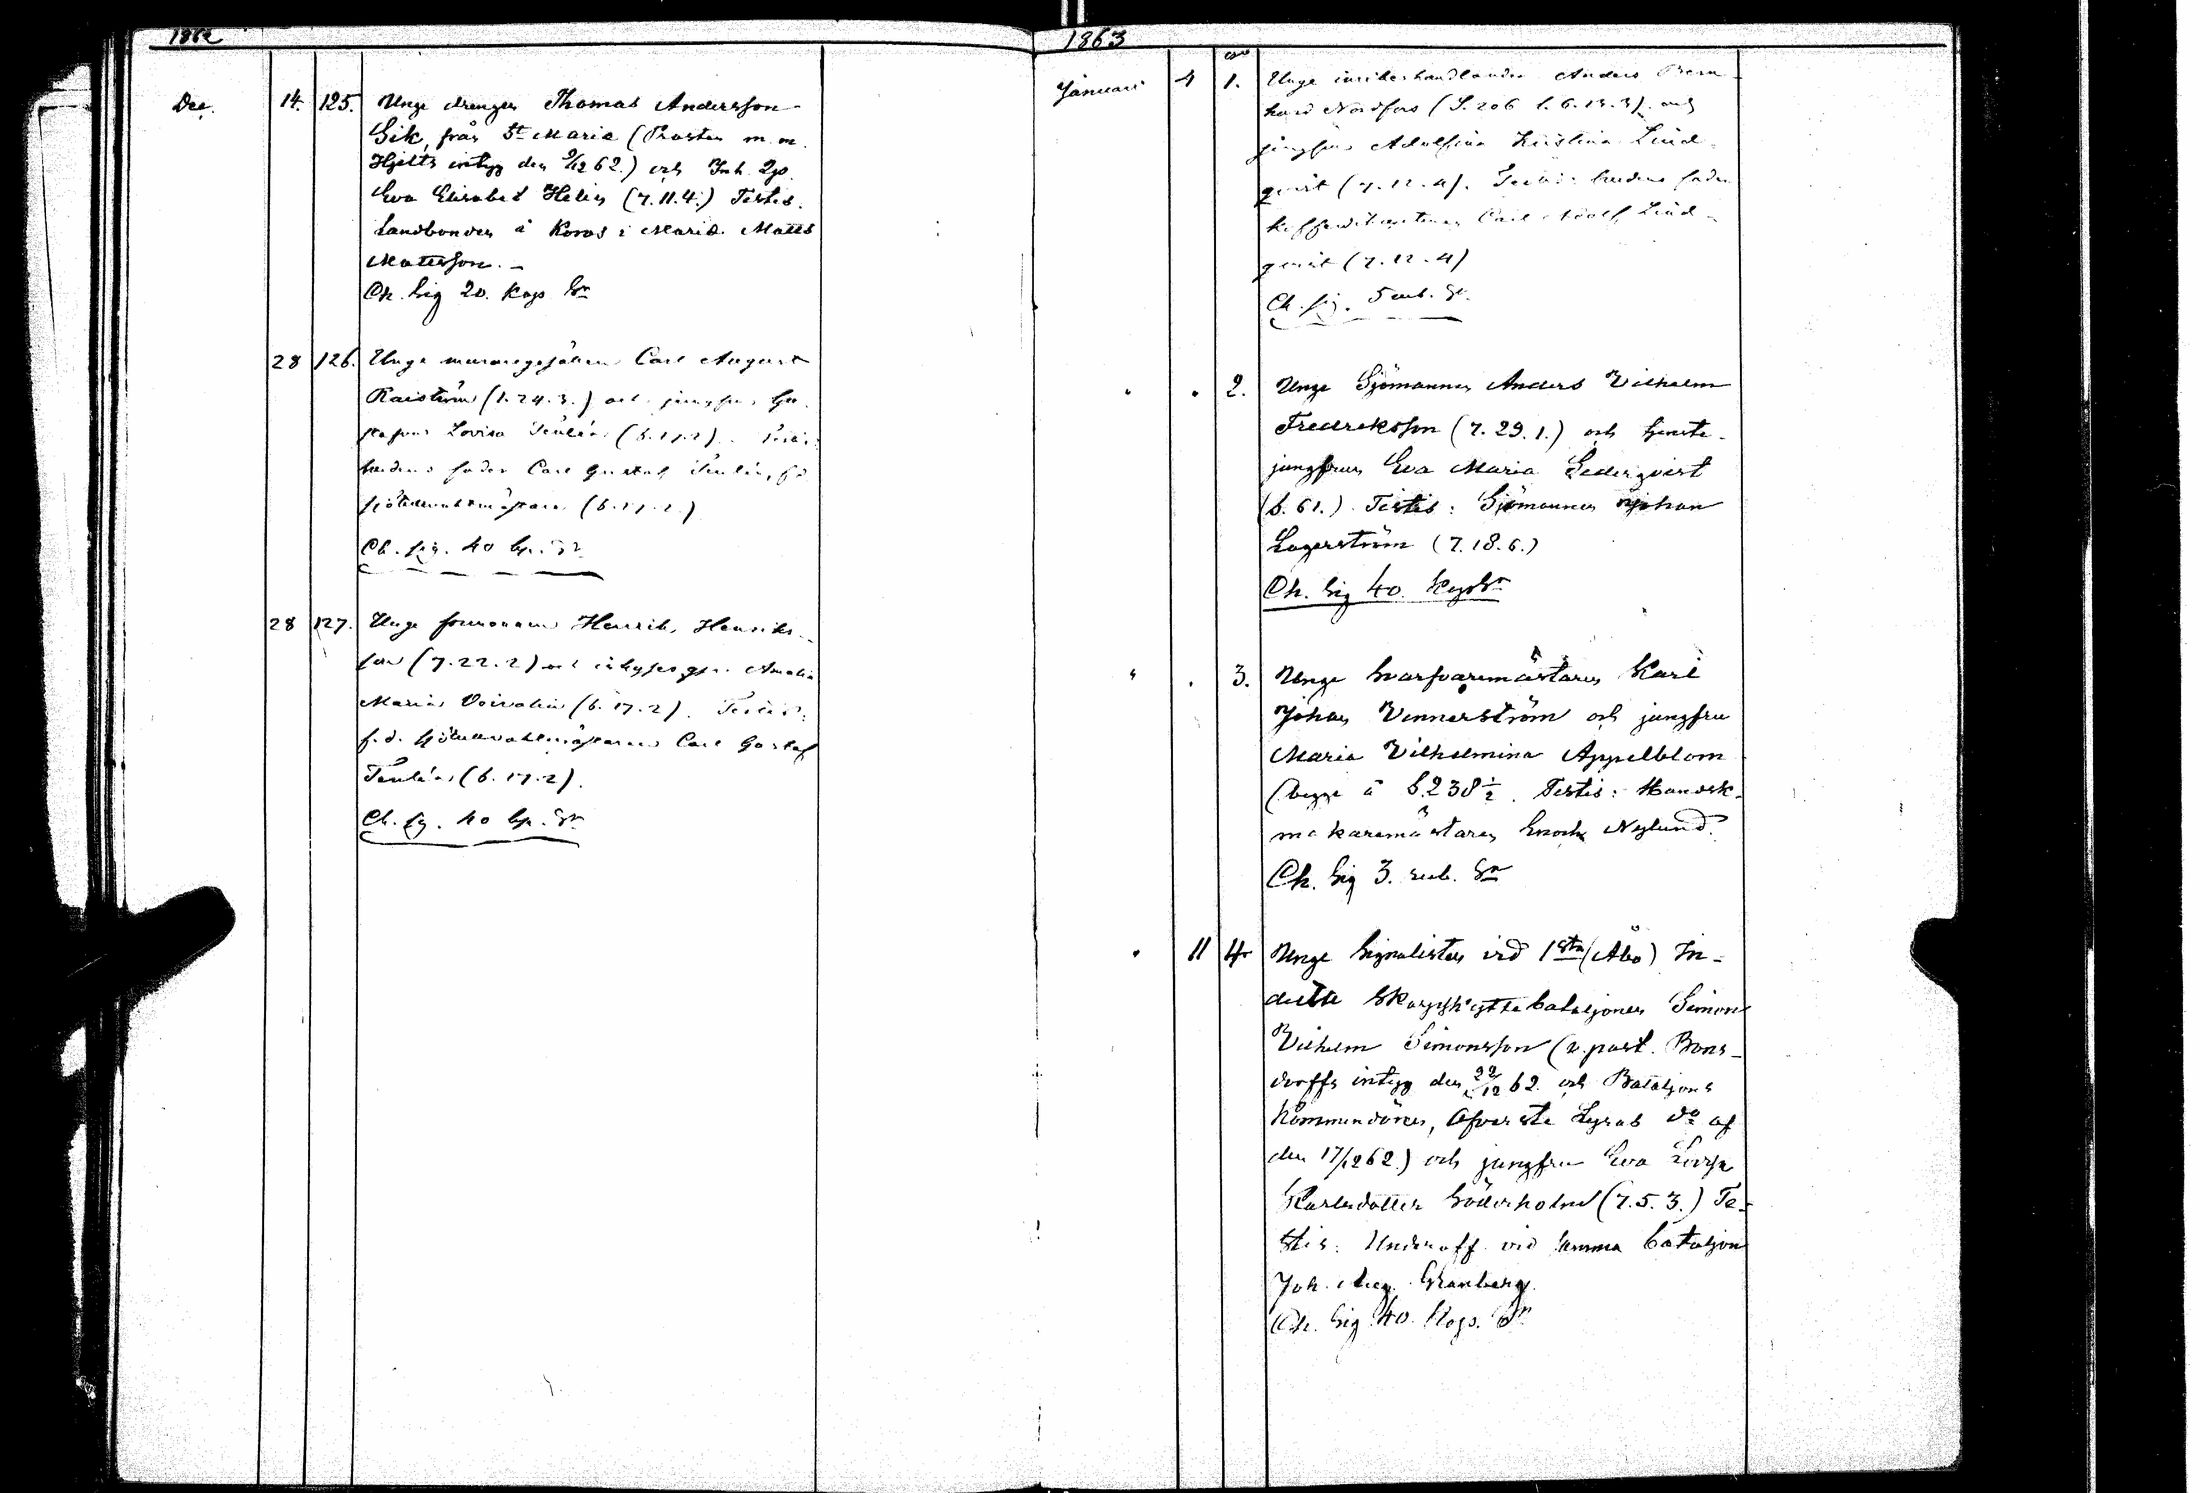 1862
Dec. 14. 125. Unge drengen Thomas Andersson
Sik, från St Maria (Prosten m. m.
Hjelts intyg den 9/12 62.) och Inh. Qp.
Eva Elisabet Helin (7.11.4.) Testis.
Landbonden å Koros i Marie Matts
Mattsson. –
Ch. Sig 20. kop. Sr
28 126. Unge muraregesällen Carl August
Raiström (1.24.3.) och jungfru Gu-
stafva Lovisa Tenlén (6.17.2). Testis:
brudens fader Carl Gustaf Tenlén, f.d.
sjötullvaktmästare (6.17.2.)
Ch. sig. 40 kp. Sr
28 127. Unge formannen Henrik Henriks-
son (7.22.2) och inhyses qp. Amalia
Maria Voivalin (6.17.2). Testis:
f.d. sjötullvaktmästaren Carl Gustaf
Tenlén (6.17.2).
Ch. sig. 40 kp. Sr
1863
Januari 4 1. Unge Anders Bern-
hard Nordfors (S. 206 l. 6.13.3) och
jungfru Adolfina Kristina Lind-
qvist (7.12.4). Testis: brudens fader
Carl Adolf Lind-
qvist (7.12.4)
Ch. sig. 5 rub. Sr.
" . 2. Unge Sjömannen Anders Vilhelm
Fredriksson (7.29.1.) och
jungfrun Eva Maria Sederqvist
(6.61.) Testis: Sjömannen Johan
Lagerström (7.18.6.)
Ch. Sig 40. Kop Sr
" . 3. Unge Svarfvaremästaren Karl
Johan Vennerström och jungfru
Maria Vilhelmina Appelblom
(begge å S. 238 1/2. Testis: Handsk-
makaremästaren Enock Nylund.
Ch. Sig 3. rub. Sr
" 11 4 Unge Signalisten vid 1sta (Åbo) In-
delta Skarpskyttebataljonen Simon
Vilhelm Simonsson (v. past. Bons-
dorffs intyg den 22/12 62. och Bataljons
Kommendören, Öfverste do af
den 17/12 62.) och jungfru Eva Lovisa
Karlsdotter Söderholm (7.5.3.) Te-
stis: Underoff. vid samma bataljon
Joh. Aug. Granberg.
Ch. Sig 40. Kop. Sr